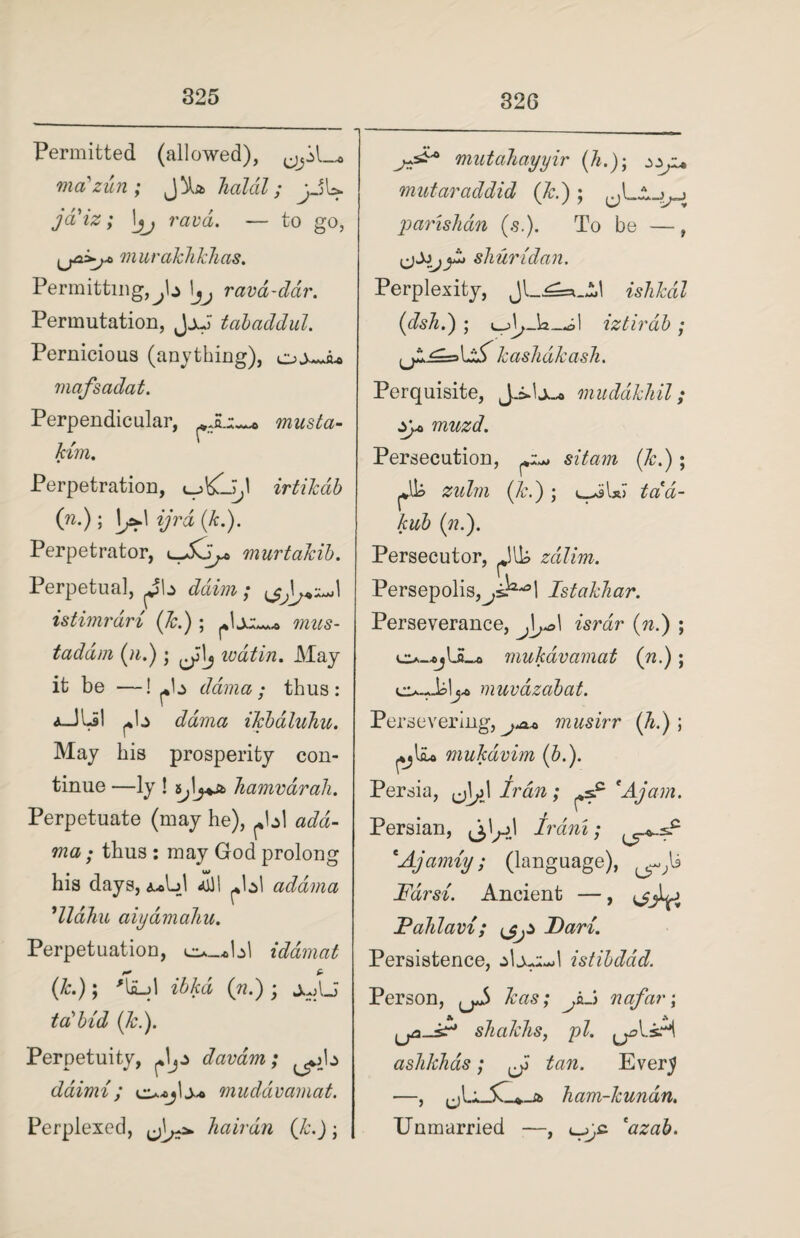 325
Permitted (allowed), ماذون
ma'zún; حلال halál; جائز
já'iz; روا ravá. — to go,
مرخص murakhkhas.
Permitting, روا دار ravá-dár.
Permutation, تبدل tabaddul.
Pernicious (anything), مفسدت
mafsadat.
Perpendicular, مستقیم musta-
kím.
Perpetration, ارتکاب irtikáb
(n.); اجرا ijrá (k.).
Perpetrator, مرتکب murtakib.
Perpetual, دائم dáim; استمراری
istimrárí (k.); مستدام mus-
taddám (n.); واتن wátin. May
it be —! دام dáma; thus:
دام اقباله dáma ikbáluhu.
May his prosperity con-
tinue —ly! همواره hamvárah.
Perpetuate (may he), ادام adá-
ma; thus: may God prolong
his days, ادام الله ایامه adáma
'lláhu aiyámahu.
Perpetuation, ادامت idámat
(k.); ابقاء ibká (n.); تابید
ta'bíd (k.).
Perpetuity, دوام davám; دائمی
dáimí; مداومت muddávamat.
Perplexed, حیران hairán (k.);
326
متحیر mutahayyir (h.); متردد
mutaraddid (k.); پریشان
paríshán (s.). To be —,
شوریدن shúrídan.
Perplexity, اشکال ishkál
(dsh.); اضطراب iztiráb;
کشاکش kashákash.
Perquisite, مداخل muddákhil;
مزد muzd.
Persecution, ستم sitam (k.);
ظلم zulm (k.); تعاقب ta'á-
kub (n.).
Persecutor, ظالم zálim.
Persepolis, اصطخر Istakhar.
Perseverance, اصرار isrár (n.);
مقاومت mukávamat (n.);
مواظبت muvázabat.
Persevering, مصر musirr (h.);
مقاوم mukávim (b.).
Persia, ایران Írán; عجم 'Ajam.
Persian, ایرانی Írání; عجمی
'Ajamíy; (language), فارسی
Fársí. Ancient —, پهلوی
Pahlaví; دری Darí.
Persistence, استبداد istibdád.
Person, کس kas; نفر nafar;
شخص shakhs, pl. اشخاص
ashkhás; تن tan. Every
—, همکنان ham-kunán.
Unmarried —, عزب 'azab.